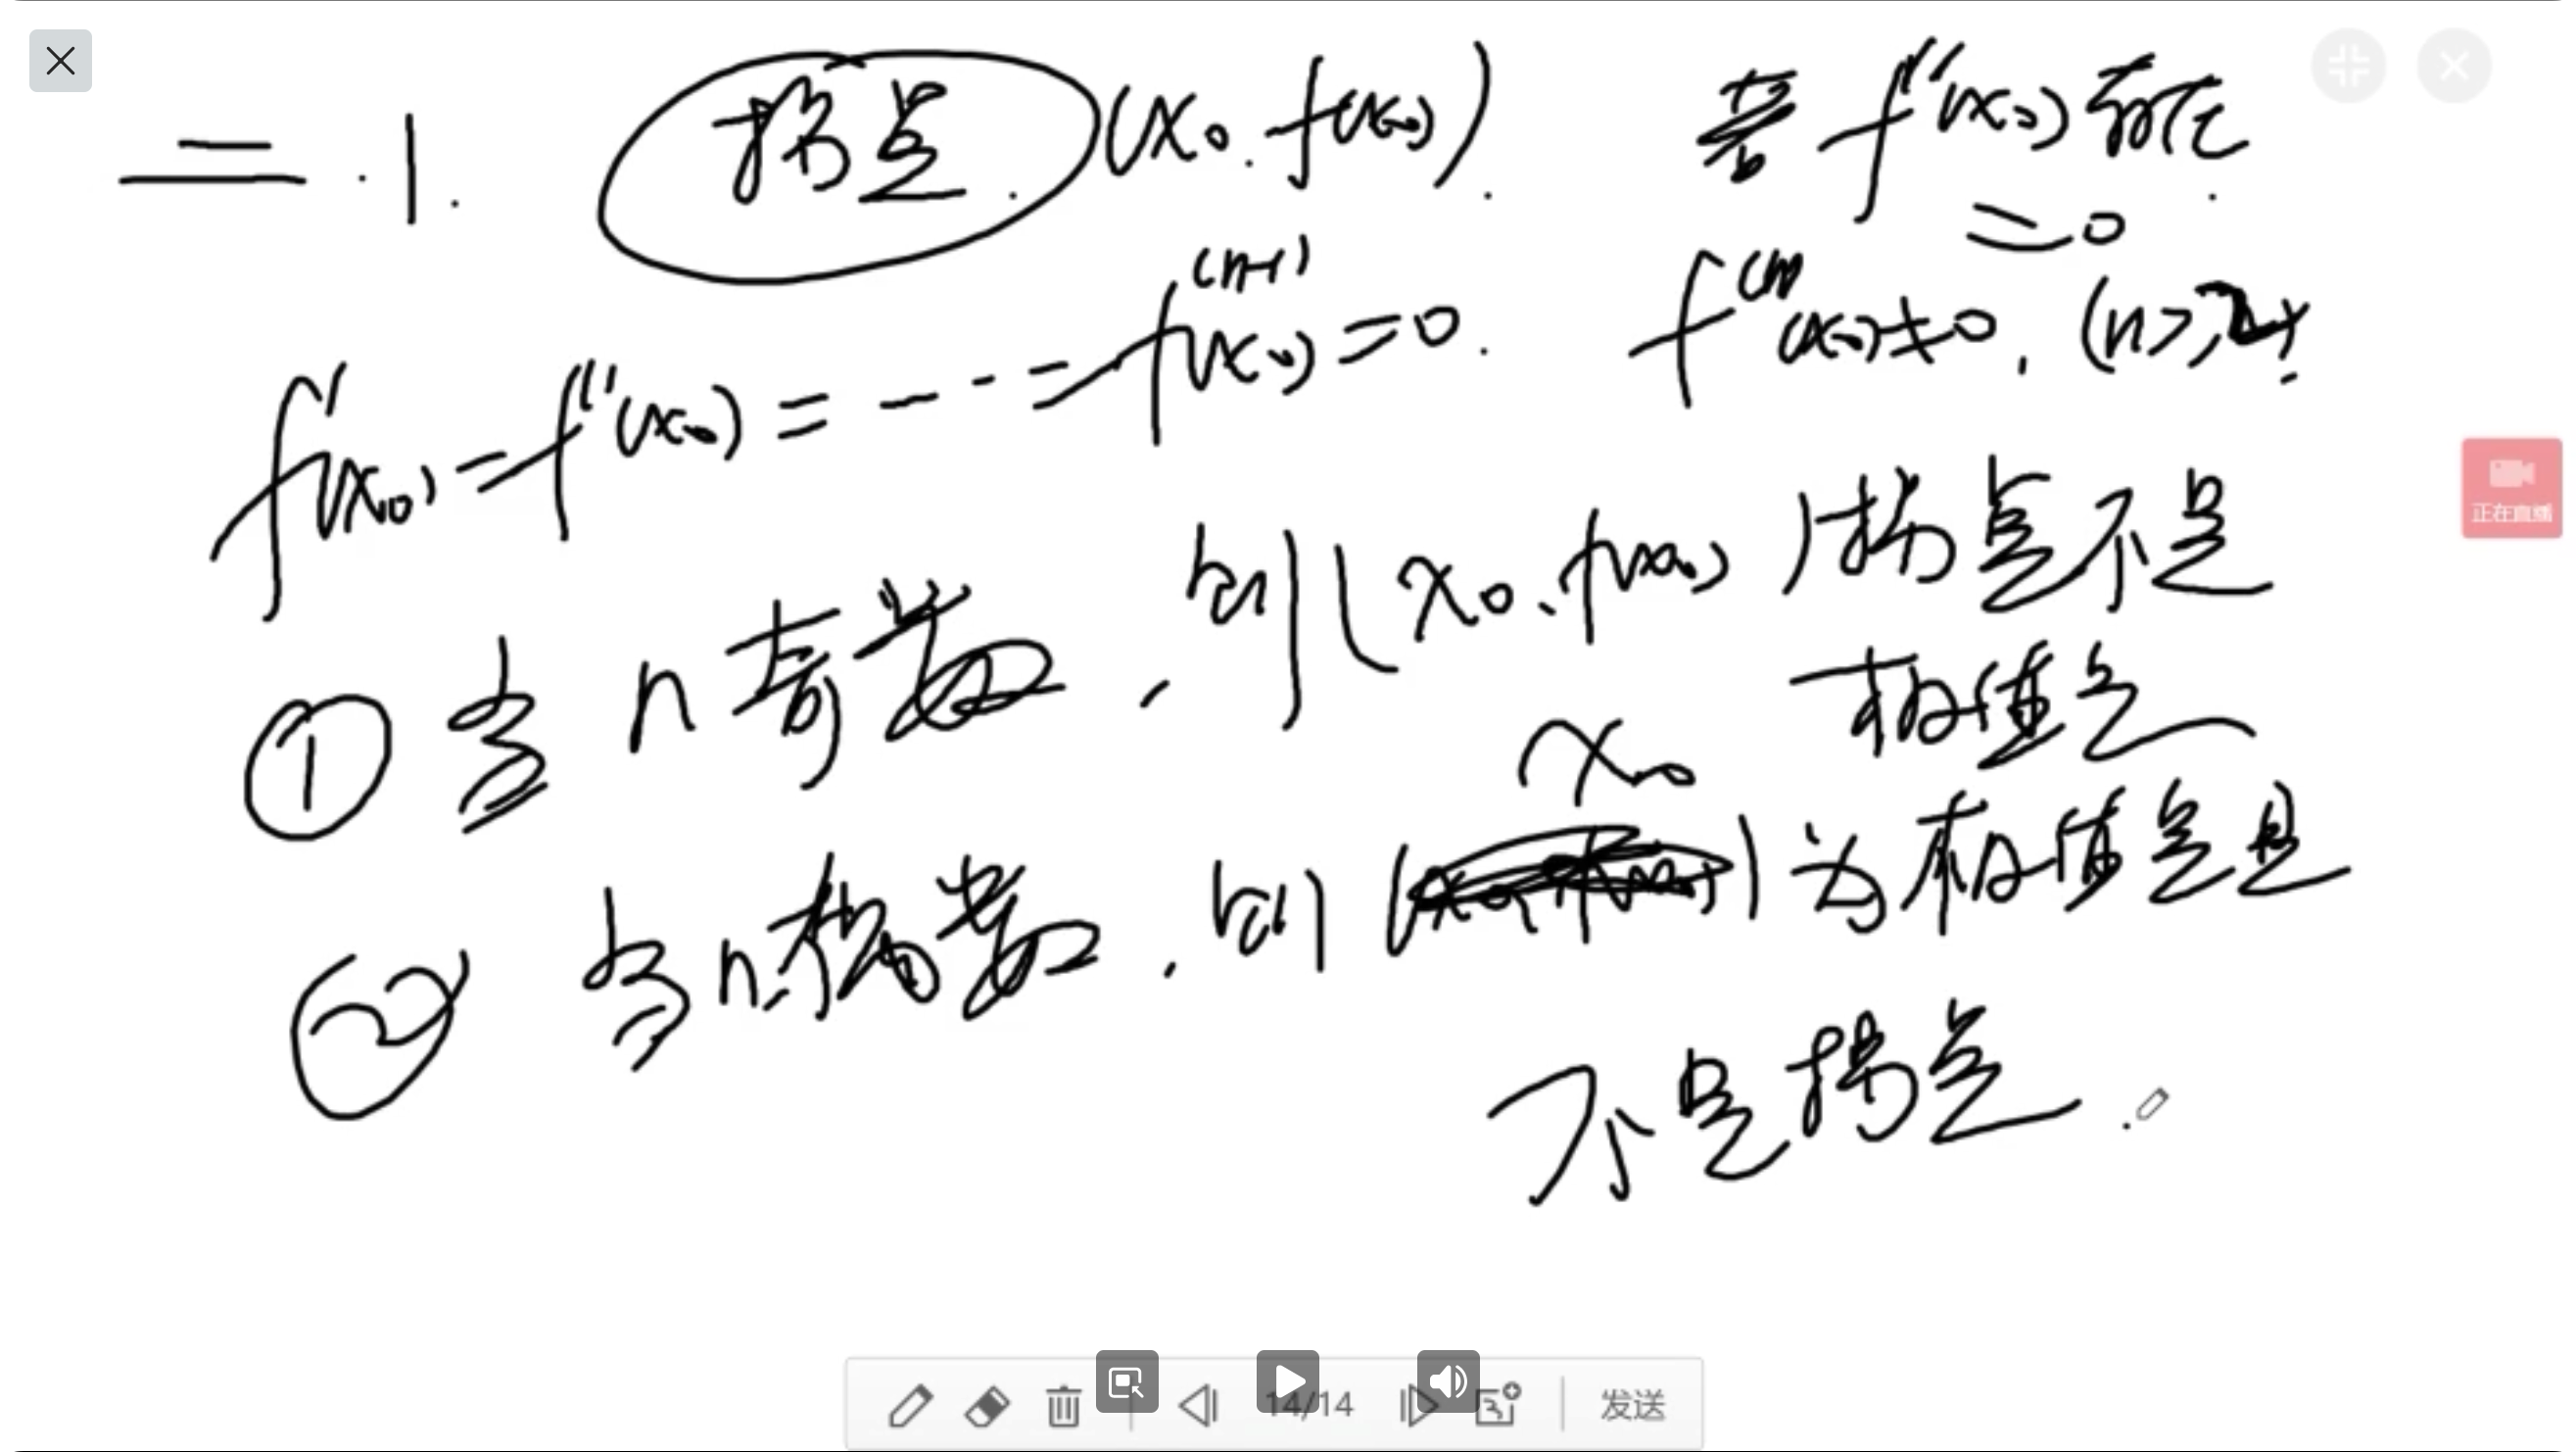 二.1. 拐点.(x₀.f(x₀)). 若f''(x₀)存在.
=0
f'(x₀)=f''(x₀)=---=f⁽ⁿ⁻¹⁾(x₀)=0. f⁽ⁿ⁾(x₀)≠0,(n>2).
①当n奇数,则(x₀.f(x₀))拐点不是
极值点
x₀
②当n偶数,则( )为极值点且
不是拐点.
正在直播
14/14
发送